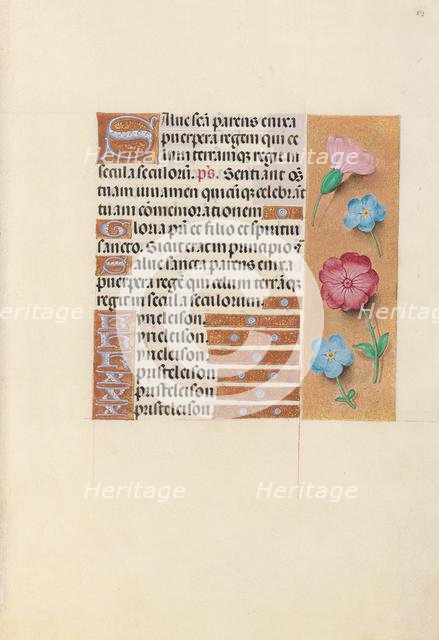 Salue scā parens enixa
puerpera regem qui ce
lum terramqꝫ regit in
secula seculoꝝ. ps. Sentiant oēs
tuam iuuamen quicūqꝫ celebrāt
tuam cōmemorationem
Gloria patri et filio et spiritui
sancto. Sicut erat in principio
Salue sancta parens enixa
puerpera regē qui celum terrāqꝫ
regit in secula seculorum.
kyrieleison.
kyrieleison.
kyrieleison.
xpisteleison.
xpisteleison.
xpisteleison
Heritage
Heritage
Heritage
Heritage
Heritage
Heritage